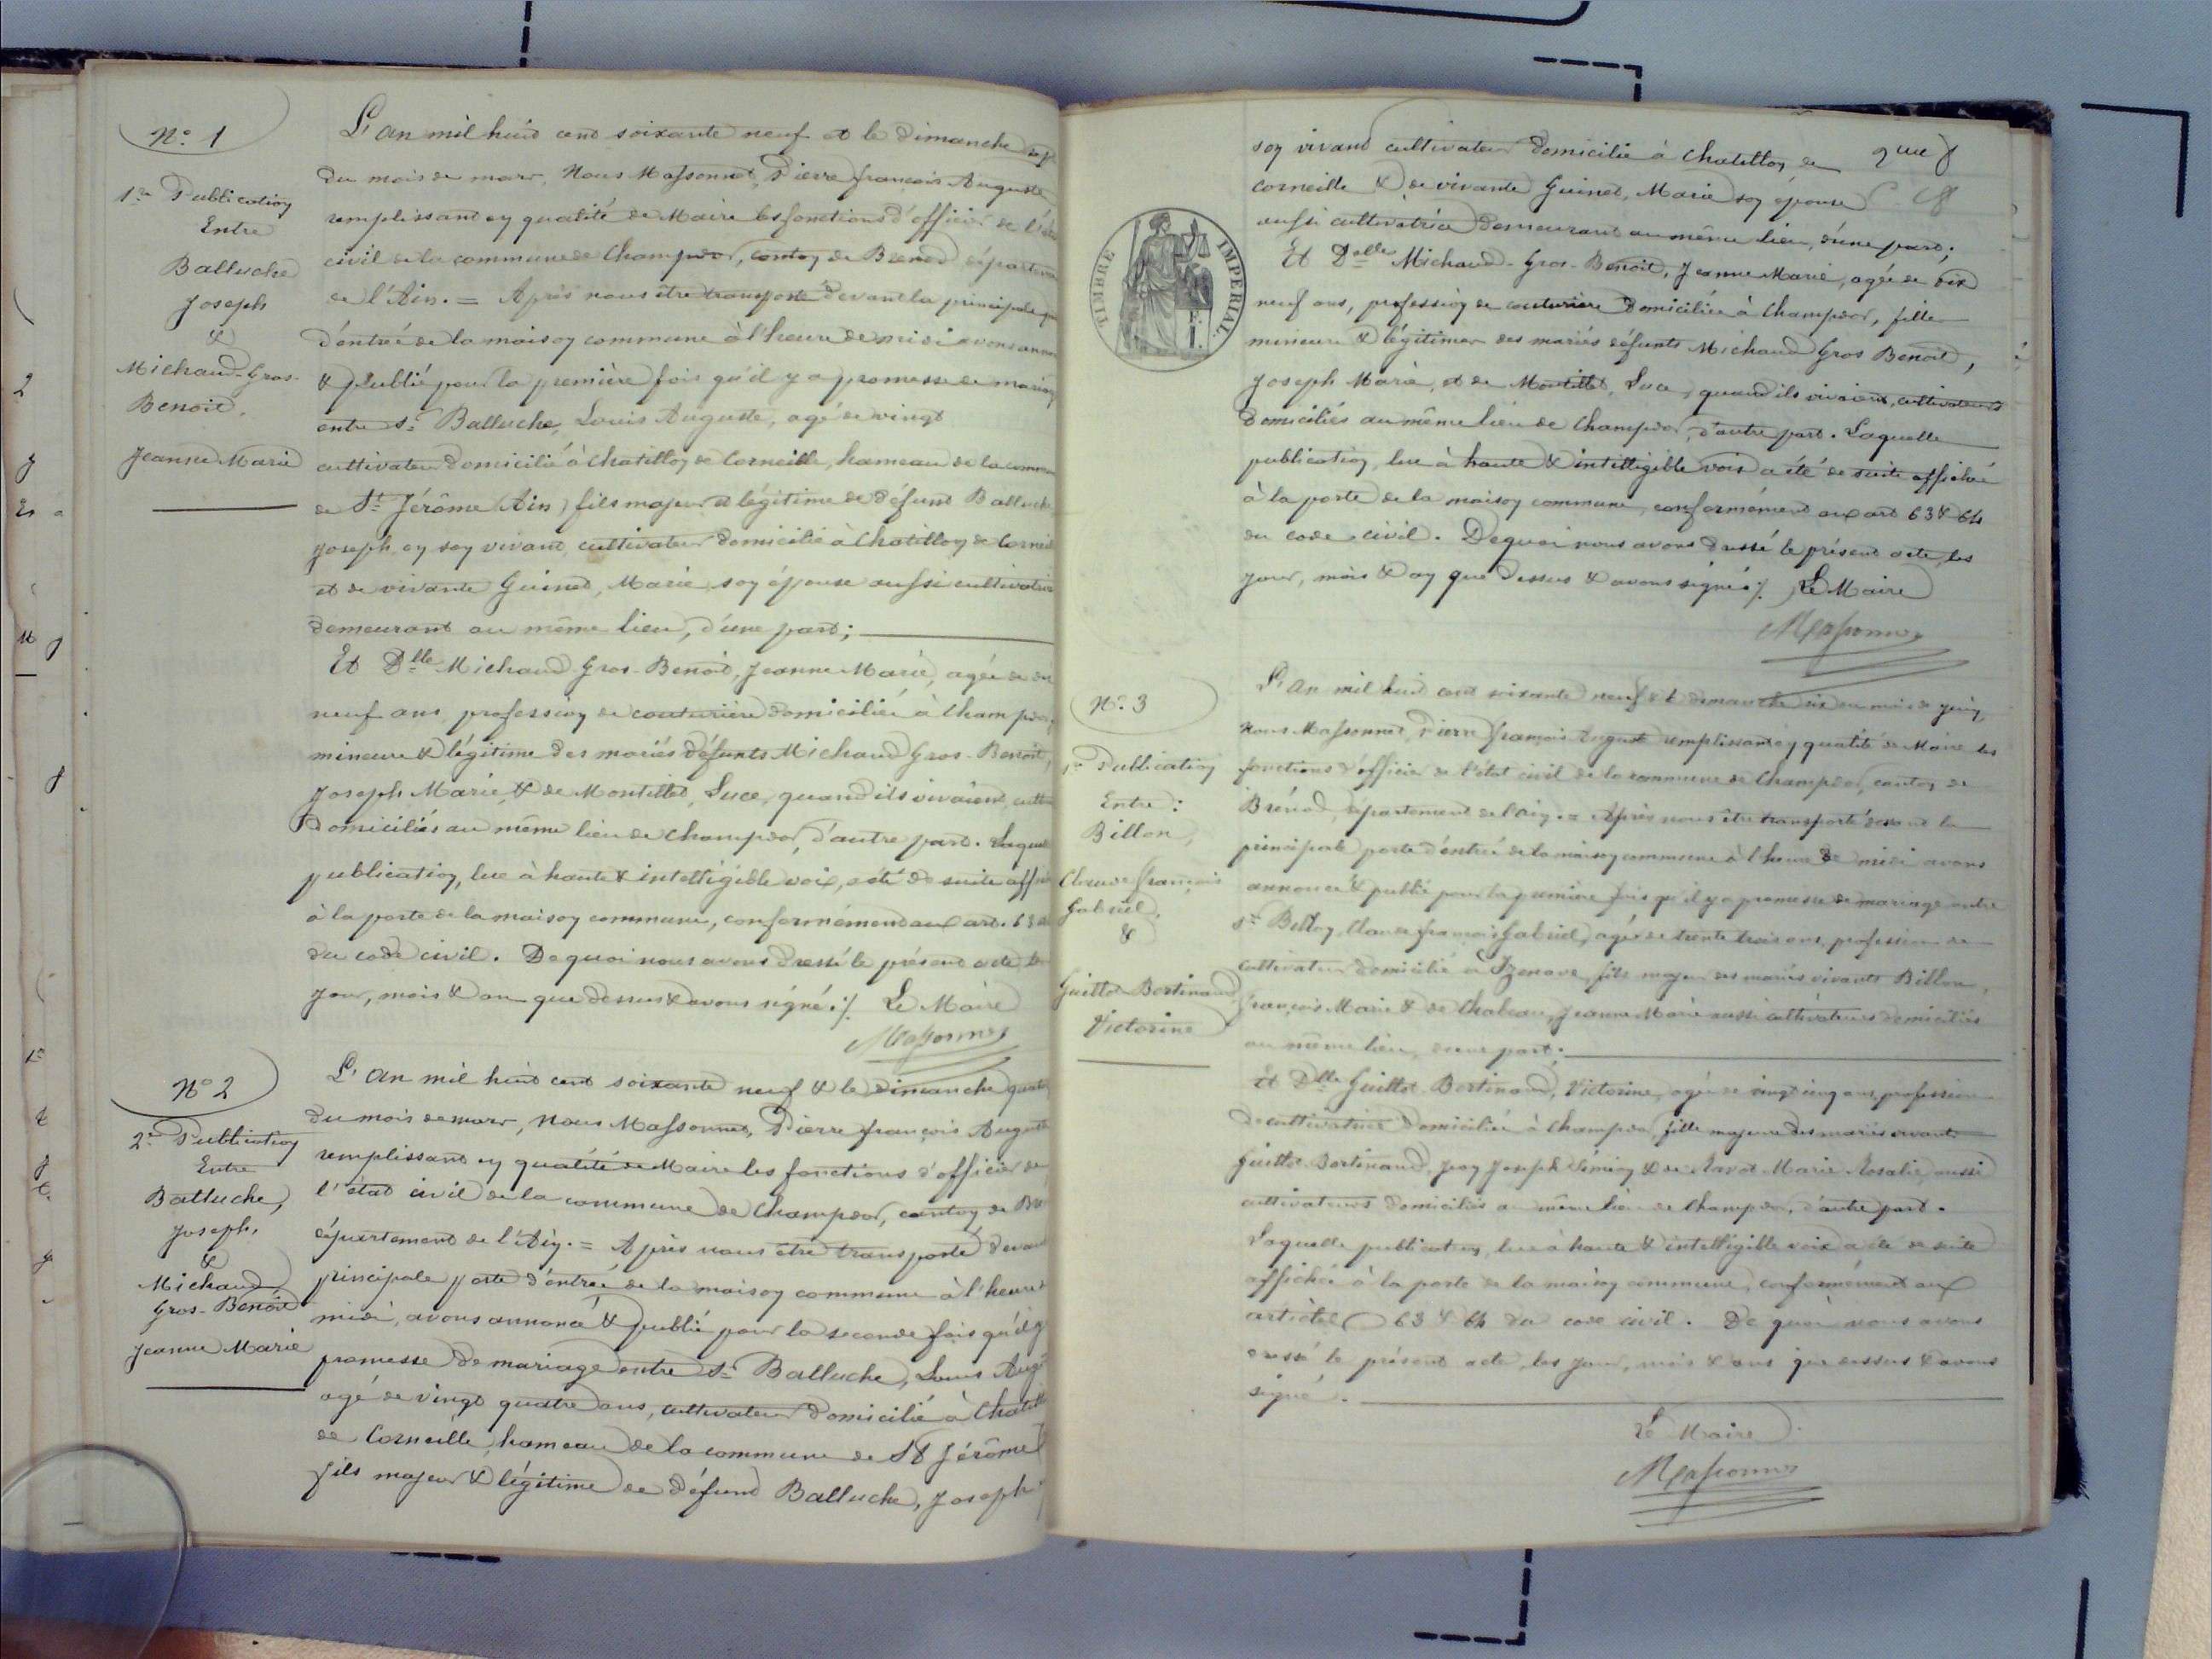 N.° 1
1.re Publication
Entre
Balluche
Joseph
&
Michaud-Gros-
Benoit,
Jeanne Marie
L'an mil huit cent soixante neuf et le dimanche sept
du mois de mars, Nous Massonnet, Pierre françois Auguste
remplissant en qualité de Maire les fonctions d'officier de l'état
civil de la commune de Champdor, canton de Brénod départem
de l'Ain. = Après nous être transporté devant la principale
d'entrée de la maison commune à l'heure de midi avons annon
& publié pour la première fois qu'il y a promesse de mariag
entre Sr. Balluche, Louis Auguste, agé de vingt
cultivateur domicilié à Chatillon de Corneille, hameau de la commun
de St. Jérôme (Ain) fils majeur & légitime de défunt Balluche
Joseph en son vivant cultivateur domicilié à Chatillon de Corneil
et de vivante Guinet, Marie son épouse aussi cultivatrice
demeurant au même lieu, d'une part;
Et Dlle Michaud Gros-Benoit, Jeanne Marie, agée de dix
neuf ans, profession de couturière domiciliée à Champdor,
mineure & légitime des mariés défunts Michaud Gros-Benoit,
Joseph Marie & de Montillet, Luce, quand ils vivaient, culti
Domiciliés au même lieu de Champdor, d'autre part. Laquel
publication, lue à haute & intelligible voix, a été de suite affi
à la porte de la maison commune, conformément aux art. 63
du code civil. De quoi nous avons dressé le présent acte les
jour, mois & an que dessus & avons signé ./. Le Maire
Massonnet
N° 2
2.e Publication
Entre
Balluche,
Joseph,
&
Michaud
Gros-Benoit
Jeanne Marie
L'an mil huit cent soixante neuf & le dimanche quato
du mois de mars, Nous Massonnet, Pierre françois Auguste
remplissant en qualité de Maire les fonctions d'officier de
l'état civil de la commune de Champdor, canton de Bré
département de l'Ain. = Après nous être transporté devant
principale porte d'entrée de la maison commune à l'heure
midi, avons annoncé & publié pour la seconde fois qu'il y
promesse de mariage entre Sr. Balluche, Louis Aug
agé de vingt quatre ans, cultivateur domicilié à Chatill
de Corneille, hameau de la commune de St Jérôme
fils majeur & légitime de défunt Balluche, Joseph
TIMBRE IMPÉRIAL.
son vivant cultivateur domicilié à Chatillon de
Corneille & de vivante Guinet, Marie son épouse
aussi cultivatrice demeurant au même lieu, d'une part;
Et Delle Michaud-Gros-Benoit, Jeanne Marie, agée de dix
neuf ans, profession de couturière domiciliée à Champdor, fille
mineure & légitime des mariés défunts Michaud Gros Benoit,
Joseph Marie, et de Montillet, Luce, quand ils vivaient, cultivateurs
Domiciliés au même lieu de Champdor, d'autre part. Laquelle
publication, lue à haute & intelligible voix a été de suite affichée
à la porte de la maison commune, conformément aux art 63 & 64
du code civil. De quoi nous avons dressé le présent acte, les
jour, mois & an que dessus & avons signé ./. Le Maire
Massonnet
N.° 3
1.re Publication
Entre :
Billon,
Claude françois
Gabriel,
&
Guillot Bertinand
Victorine
L'an mil huit cent soixante neuf & le dimanche six du mois de juin,
Nous Massonnet, Pierre françois Auguste remplissant en qualité de Maire les
fonctions d'officier de l'état civil de la commune de Champdor, canton de
Brénod, département de l'Ain. = Après nous être transporté devant la
principale porte d'entrée de la maison commune à l'heure de midi avons
annoncé & publié pour la première fois qu'il y a promesse de mariage entre
Sr. Billon, Claude françois Gabriel, agé de trente trois ans, profession de
cultivateur domicilié à Izenave, fils majeur des mariés vivants Billon,
françois Marie & de Jeanne Marie aussi cultivateurs domiciliés
au même lieu, d'une part;
Et Dlle Guillot Bertinand, Victorine, agée de vingt cinq ans, profession
de cultivatrice domiciliée à Champdor, fille majeure des mariés vivants
Guillot-Bertinand, Joseph & de Ravot Marie Rosalie, aussi
cultivateurs domiciliés au même lieu de Champdor, d'autre part.
Laquelle publication, lue à haute & intelligible voix a été de suite
affichée à la porte de la maison commune, conformément aux
articles 63 & 64 du code civil. De quoi nous avons
dressé le présent acte, les jour, mois & ans que dessus & avons
signé.
Le Maire
Massonnet